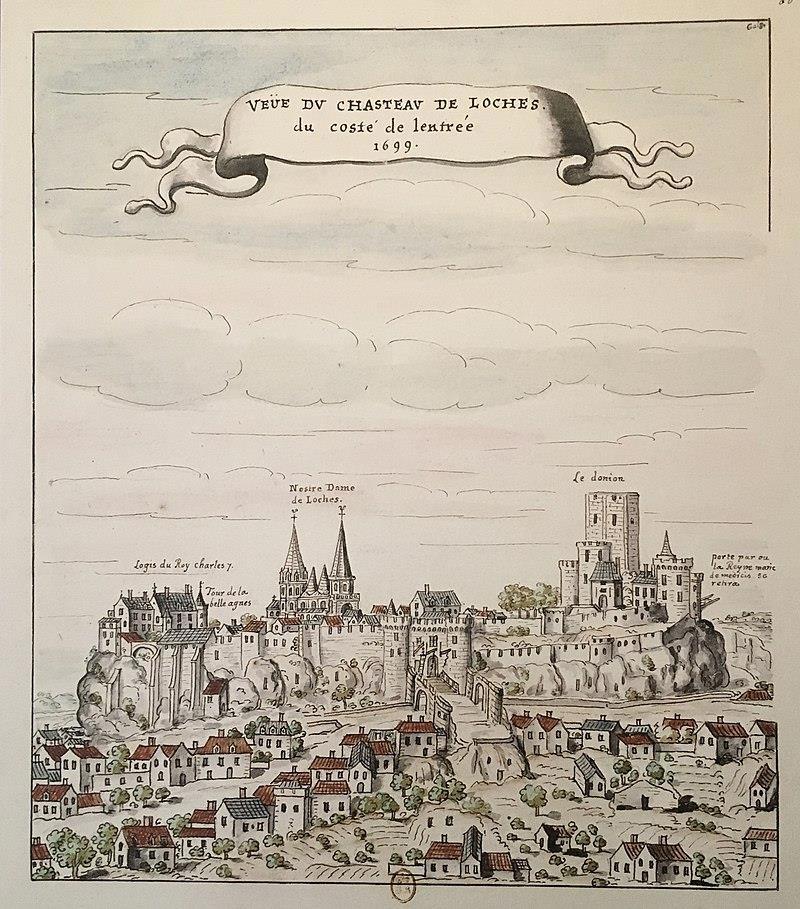 VEÜE DV CHASTEAV DE LOCHES.
du costé de lentrée
1699.
Nostre Dame
de Loches.
Le donion
Logis du Roy charles 7.
Tour de la
belle agnes
porte par ou
la Reyne marie
de medicis se
retira